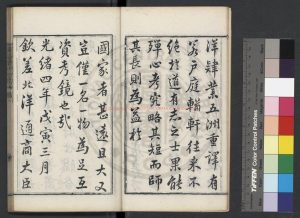 洋肄業五洲重譯有
若戶庭輶軒往來不
絕於道有志之士果能
殫心考究略其短而師
其長則為益於
國家者甚遠且大又
豈僅一名物為足互
資考鏡也哉
光緒四年戊寅三月
欽差北洋通商大臣
TIFFEN Color Control Patches